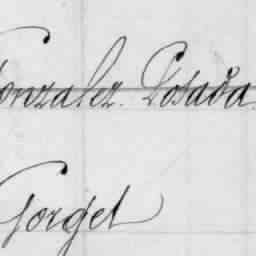 Gonzalez Posada
Gorget